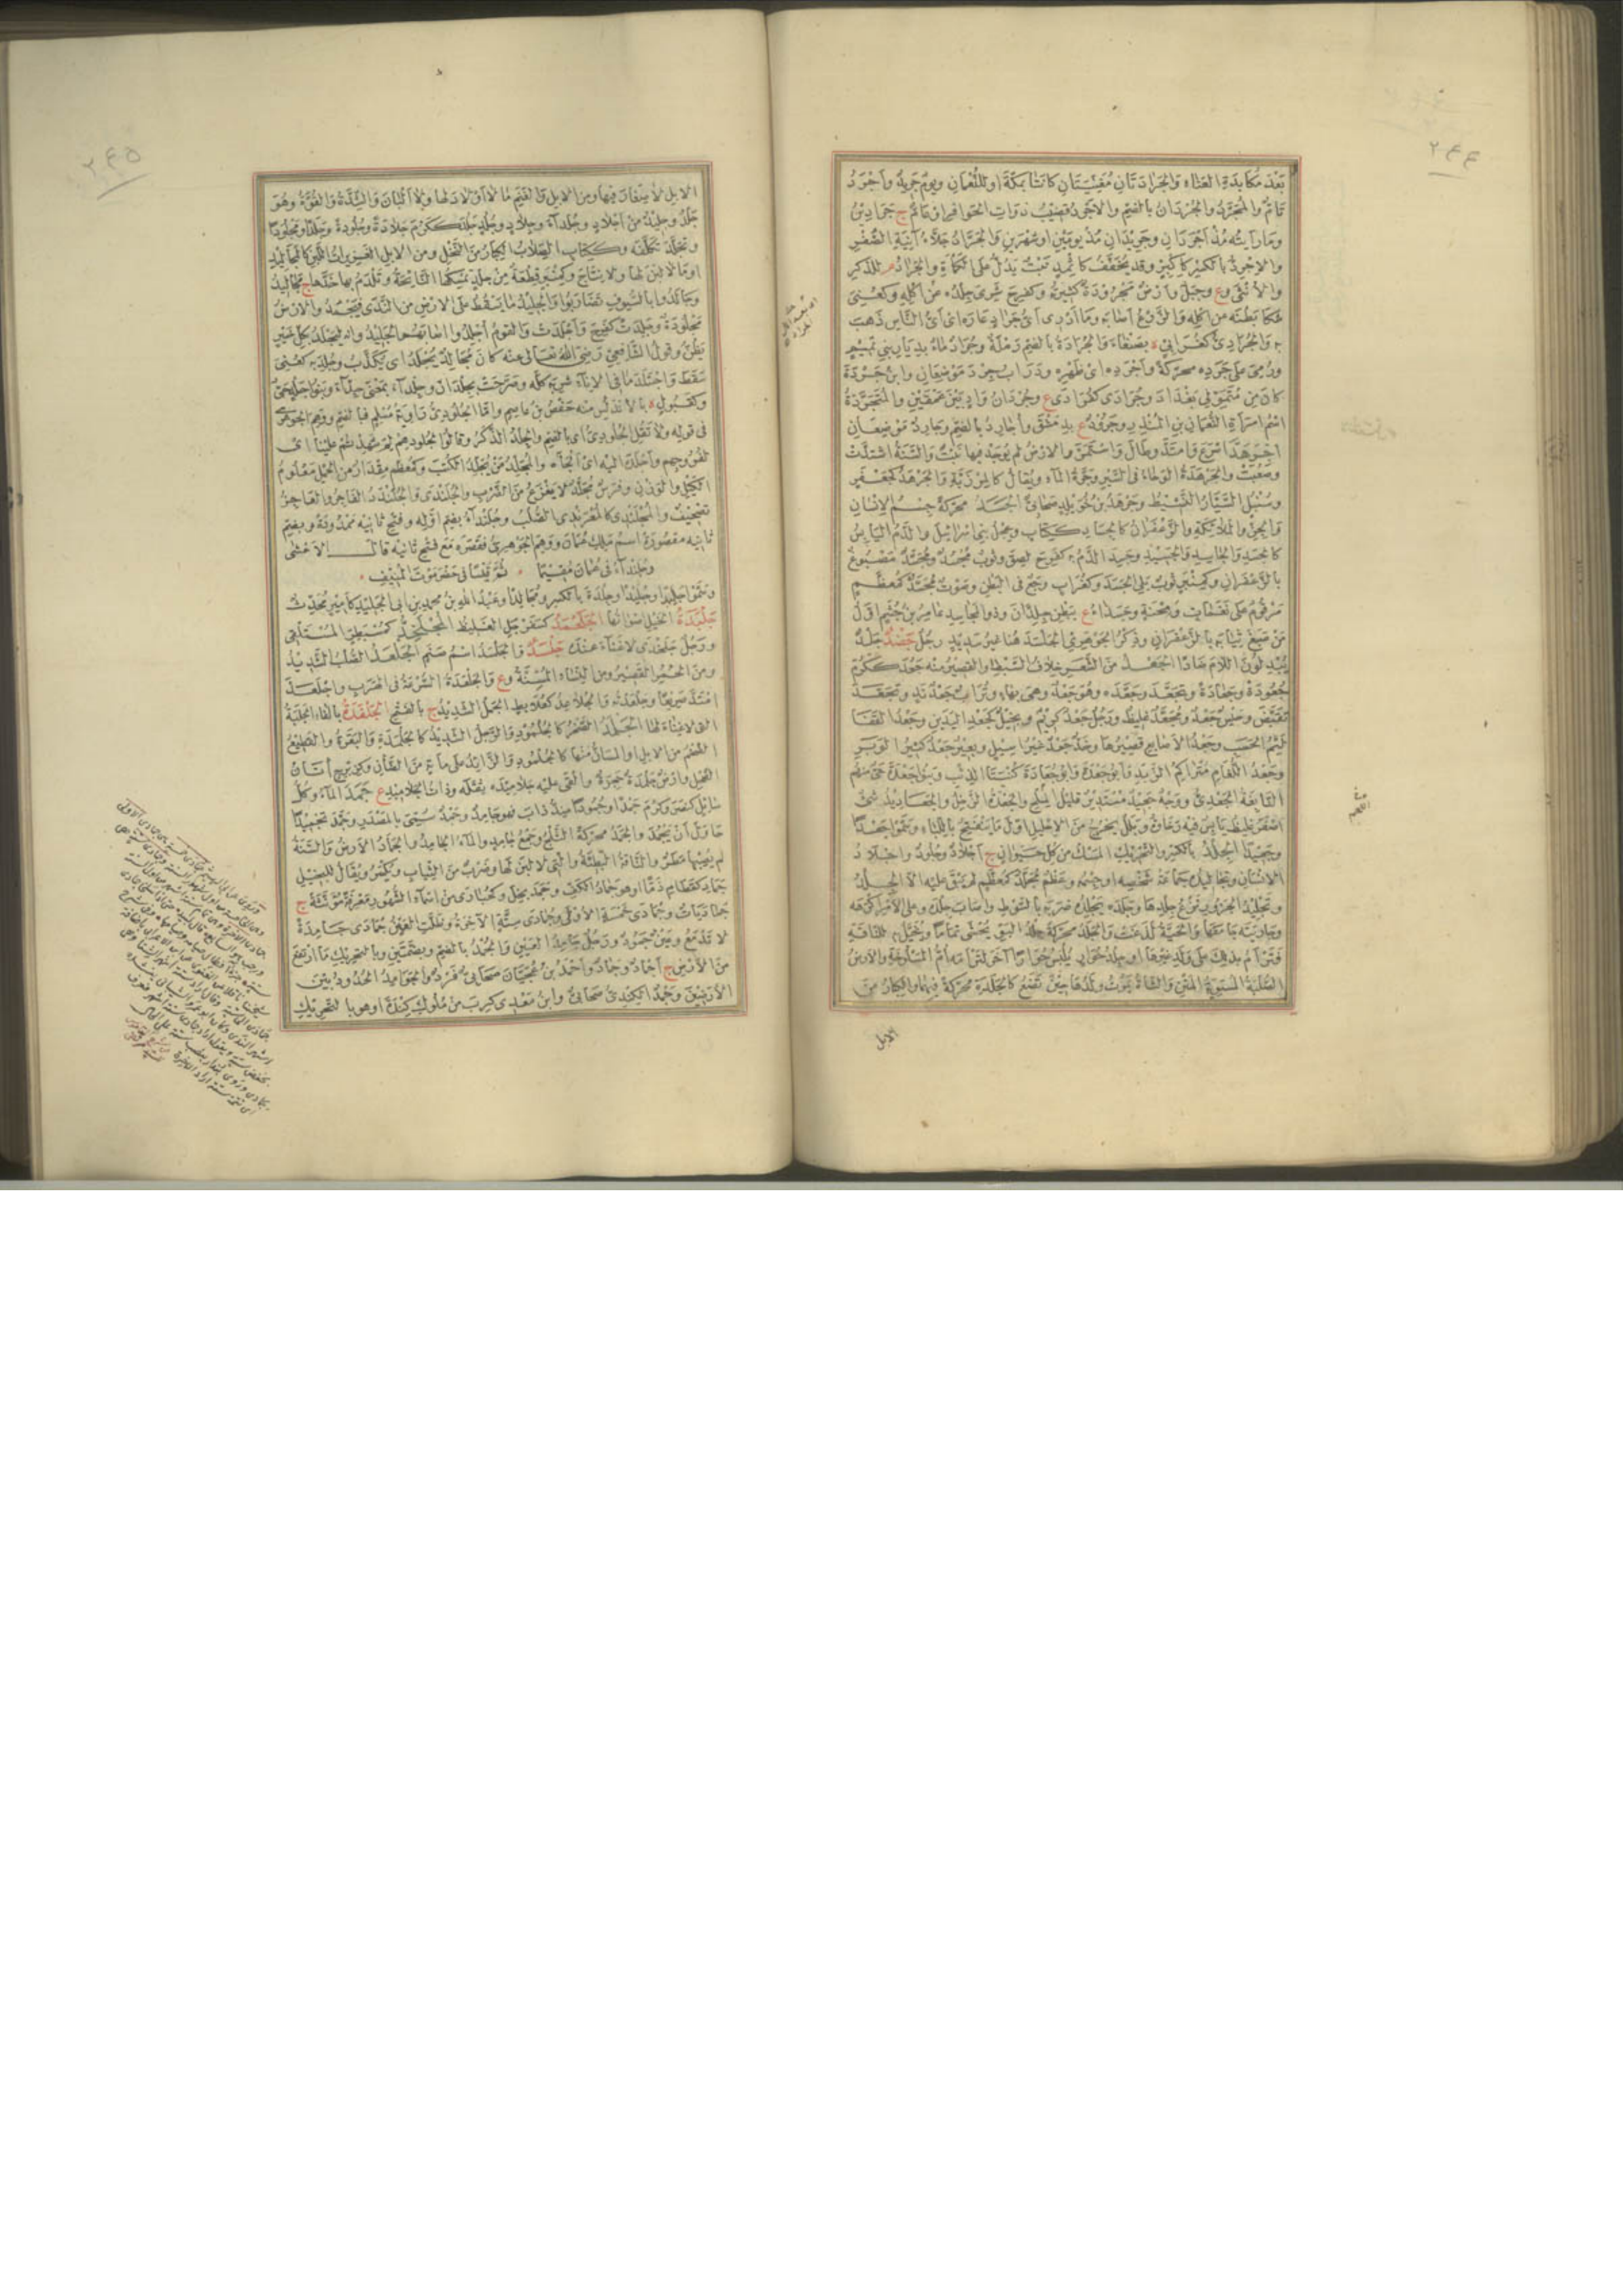 ٢٤٤
بعد مكابدة العناء والجرادتان مغنيتان كانتا بمكة او للنعمان ويوم جريد واجرد
تام والمجرد والجردان بالضم والاجرد قضيب ذوات الحوافر او عام ج جرادين
وما رأيته مذ اجردان وجريدان مذ يومين او شهرين والجراد جلاء آنية الصفر
والاجرد بالكسر كاكبر وقد يخفف كاثمد نبت يدل على الكمأة والجراد م للذكر
والانثى وع وجبل وارض مجرودة كثيرته وكفرح شرى جلده من اكله وكعني
شكا بطنه من اكله والزرع اصابه وما ادرى اى جراد عاره اى اى الناس ذهب
به والجرادى كغرابى ة بصنعاء والجرادة بالضم رملة وجراد ماء بديار بنى تميم
ورمى على جرده محركة واجرده اى ظهره ودراب جرد موضعان وابن جردة
كان من متمولى بغداد وجرادى كفرادى ع وجردان واد بين عمقين والمتجردة
اسم امرأة النعمان بن المنذر وجرود ع بدمشق واجارد بالضم وجارد موضعان
اجرهد اسرع وامتد وطال واستمر والارض لم يوجد فيها نبت والسنة اشتدت
وصعبت والجرهدة الوحاء فى السير وجرة الماء ويقال كالمرذبة والجرهد كجعفر
وسنبل السيار النشيط وجرهد بن خويلد صحابى الجسد محركة جسم الانسان
والجن والملائكة والزعفران كالجساد ككتاب وعجل بنى اسرائيل والدم اليابس
كالجسد والجاسد والجسيد وجسد الدم به كفرح لصق وثوب مجسد ومجسد مصبوغ
بالزعفران وكمنبر ثوب يلى الجسد وكغراب وجع فى البطن وصوت مجسد كمعظم
مرقوم على نغمات ومحنة وجسداء ع ببطن جلذان وذو المجاسد عامر بن جشم اول
من صبغ ثيابه بالزعفران وذكر الجوهرى الجلسد هنا غير سديد رجل جضد جلد
يبدلون اللام ضادا الجعد من الشعر خلاف السبط او القصير منه جعد ككرم
جعودة وجعادة وتجعد وجعده وهو جعد وهى بهاء وتراب جعد ند وتجعد
تقبض وحيس جعد ومجعد غليظ ورجل جعد كريم وبخيل كجعد اليدين وجعد القفا
لئيم الحسب وجعد الاصابع قصيرها وخد جعد غير اسيل وبعير جعد كثير الوبر
وجعد اللغام متراكم الزبد وابو جعدة وابو جعادة كنيتا الذئب وبنو جعدة حى منهم
النابغة الجعدى ووجه جعد مستدير قليل الملح والجعدة الرخل والجعاديد شئ
اصفر غليظ يابس فيه رخاوة وبلل يخرج من الاحليل اول ما ينفتح باللباء وسموا جعدا
وجعيدا الجلد بالكسر والتحريك المسك من كل حيوان ج اجلاد وجلود واجلاد
الانسان وتجاليده جماعة شخصه او جسمه وعظم مجلد كمعظم لم يبق عليه الا الجلد
وتجليد الجزور نزع جلدها وجلده يجلده ضربه بالسوط واصاب جلده وعلى الامر اكرهه
وجاريته جامعها والحية لدغت والجلد محركة جلد البو يحشى ثماما ويخيل به للناقة
فترأم بذلك على ولد غيرها او جلد حوار يلبس حوارا آخر لترأمه ام المسلوخة والارض
الصلبة المستوية المتن والشاة يموت ولدها حين تضع كالجلدة محركة فيهما والكبار من
الابل
٢٤٥
الابل لا صغار فيها ومن الابل والغنم ما لا اولاد لها ولا البان والشدة والقوة وهو
جلد وجليد من اجلاد وجلداء وجلاد وجلد جلد ككرم جلادة وجلودة وجلدا ومجلودا
وتجلد تكلفه وككتاب الصلاب الكبار من النخل ومن الابل الغزيرات اللبن كالمجاليد
او ما لا لبن لها ولا نتاج وكمنبر قطعة من جلد تمسكها النائحة وتلدم بها خدها ج مجاليد
وجالدوا بالسيوف تضاربوا والجليد ما يسقط على الارض من الندى فيجمد والارض
مجلودة وجلدت كفرح واجلدت والقوم اجلدوا اصابهم الجليد وانه ليجلد بكل خير
يظن وقول الشافعى رضى الله تعالى عنه كان مجالد يجلد اى يكذب وجلد به كعنى
سقط واجتلد ما فى الاناء شربه كله وصرحت بجلدان وجلداء بمعنى جداء وبنو جلد حى
وكقبول ة بالاندلس منه حفص بن عاصم واما الجلودى راوية مسلم فبالضم ووهم الجوهرى
فى قوله ولا تقل الجلودى اى بالضم والجلد الذكر وقالوا لجلودهم لم شهدتم علينا اى
لفروجهم واجلده اليه اى الجأه والمجلد من يجلد الكتب وكمعظم مقدار من الحمل معلوم
الكيل والوزن وفرس مجلد لا يفزع من الضرب والجلندى والجلندد الفاجر والعاجز
تصحيف والمجلندى كالمعرندى الصلب وجلنداء بضم اوله وفتح ثانيه ممدودة وبضم
ثانيه مقصورة اسم ملك عمان ووهم الجوهرى فقصره مع فتح ثانيه قال الاعشى
وجلنداء فى عمان مقيما ثم قيسا فى حضرموت المنيف
وسموا جلدا وجليدا وجلدة بالكسر ومجالدا وعبد الله بن محمد بن ابى الجليد كامير محدث
جلبدة الخيل اصواتها الجلحمد كسفرجل الغليظ المجلخد كمسبطر المستلقى
ورجل جلخدى لا غناء عنده جلسد والجلسد اسم صنم الجلعد الصلب الشديد
ومن الحمر القصير ومن النساء المسنة وع والجلعدة السرعة فى الهرب واجلعد
امتد صريعا وجلعدته والجلاعد كعلابط الجمل الشديد ج بالفتح الجلفدة بالفاء الجلبة
التى لا غناء لها الجلمد الصخر كالجلمود والرجل الشديد كالجلمدة والبقرة والقطيع
الضخم من الابل او المسان منها كالجلمود والزائد على مائة من الضأن وكزبرج اتان
الضحل وارض جلمدة حجرة والقى عليه جلاميده ثقله وذات الجلاميد ع جمد الماء وكل
سائل كنصر وكرم جمدا وجمودا ضد ذاب فهو جامد وجمد سمى بالمصدر وجمد تجميدا
حاول ان يجمد والجمد محركة الثلج وجمع جامد والماء الجامد والجماد الارض والسنة
لم يصبها مطر والناقة البطيئة والتى لا لبن لها وضرب من الثياب ويكسر ويقال للبخيل
جماد كقطام ذما او هو جماد الكف وجمد بخل وكحبارى من اسماء الشهور معرفة مؤنثة ج
جماديات وجمادى خمسة الاولى وجمادى ستة الآخرة وظلت العين جمادى جامدة
لا تدمع وعين جمود ورجل جامد العين والجمد بالضم وبضمتين وبالتحريك ما ارتفع
من الارض ج اجماد وجماد واحمد بن عجيان صحابى فرد والجوامد الحدود بين
الارضين وجمد الكندى صحابى وابن معدى كرب من ملوك كندة او هو بالتحريك